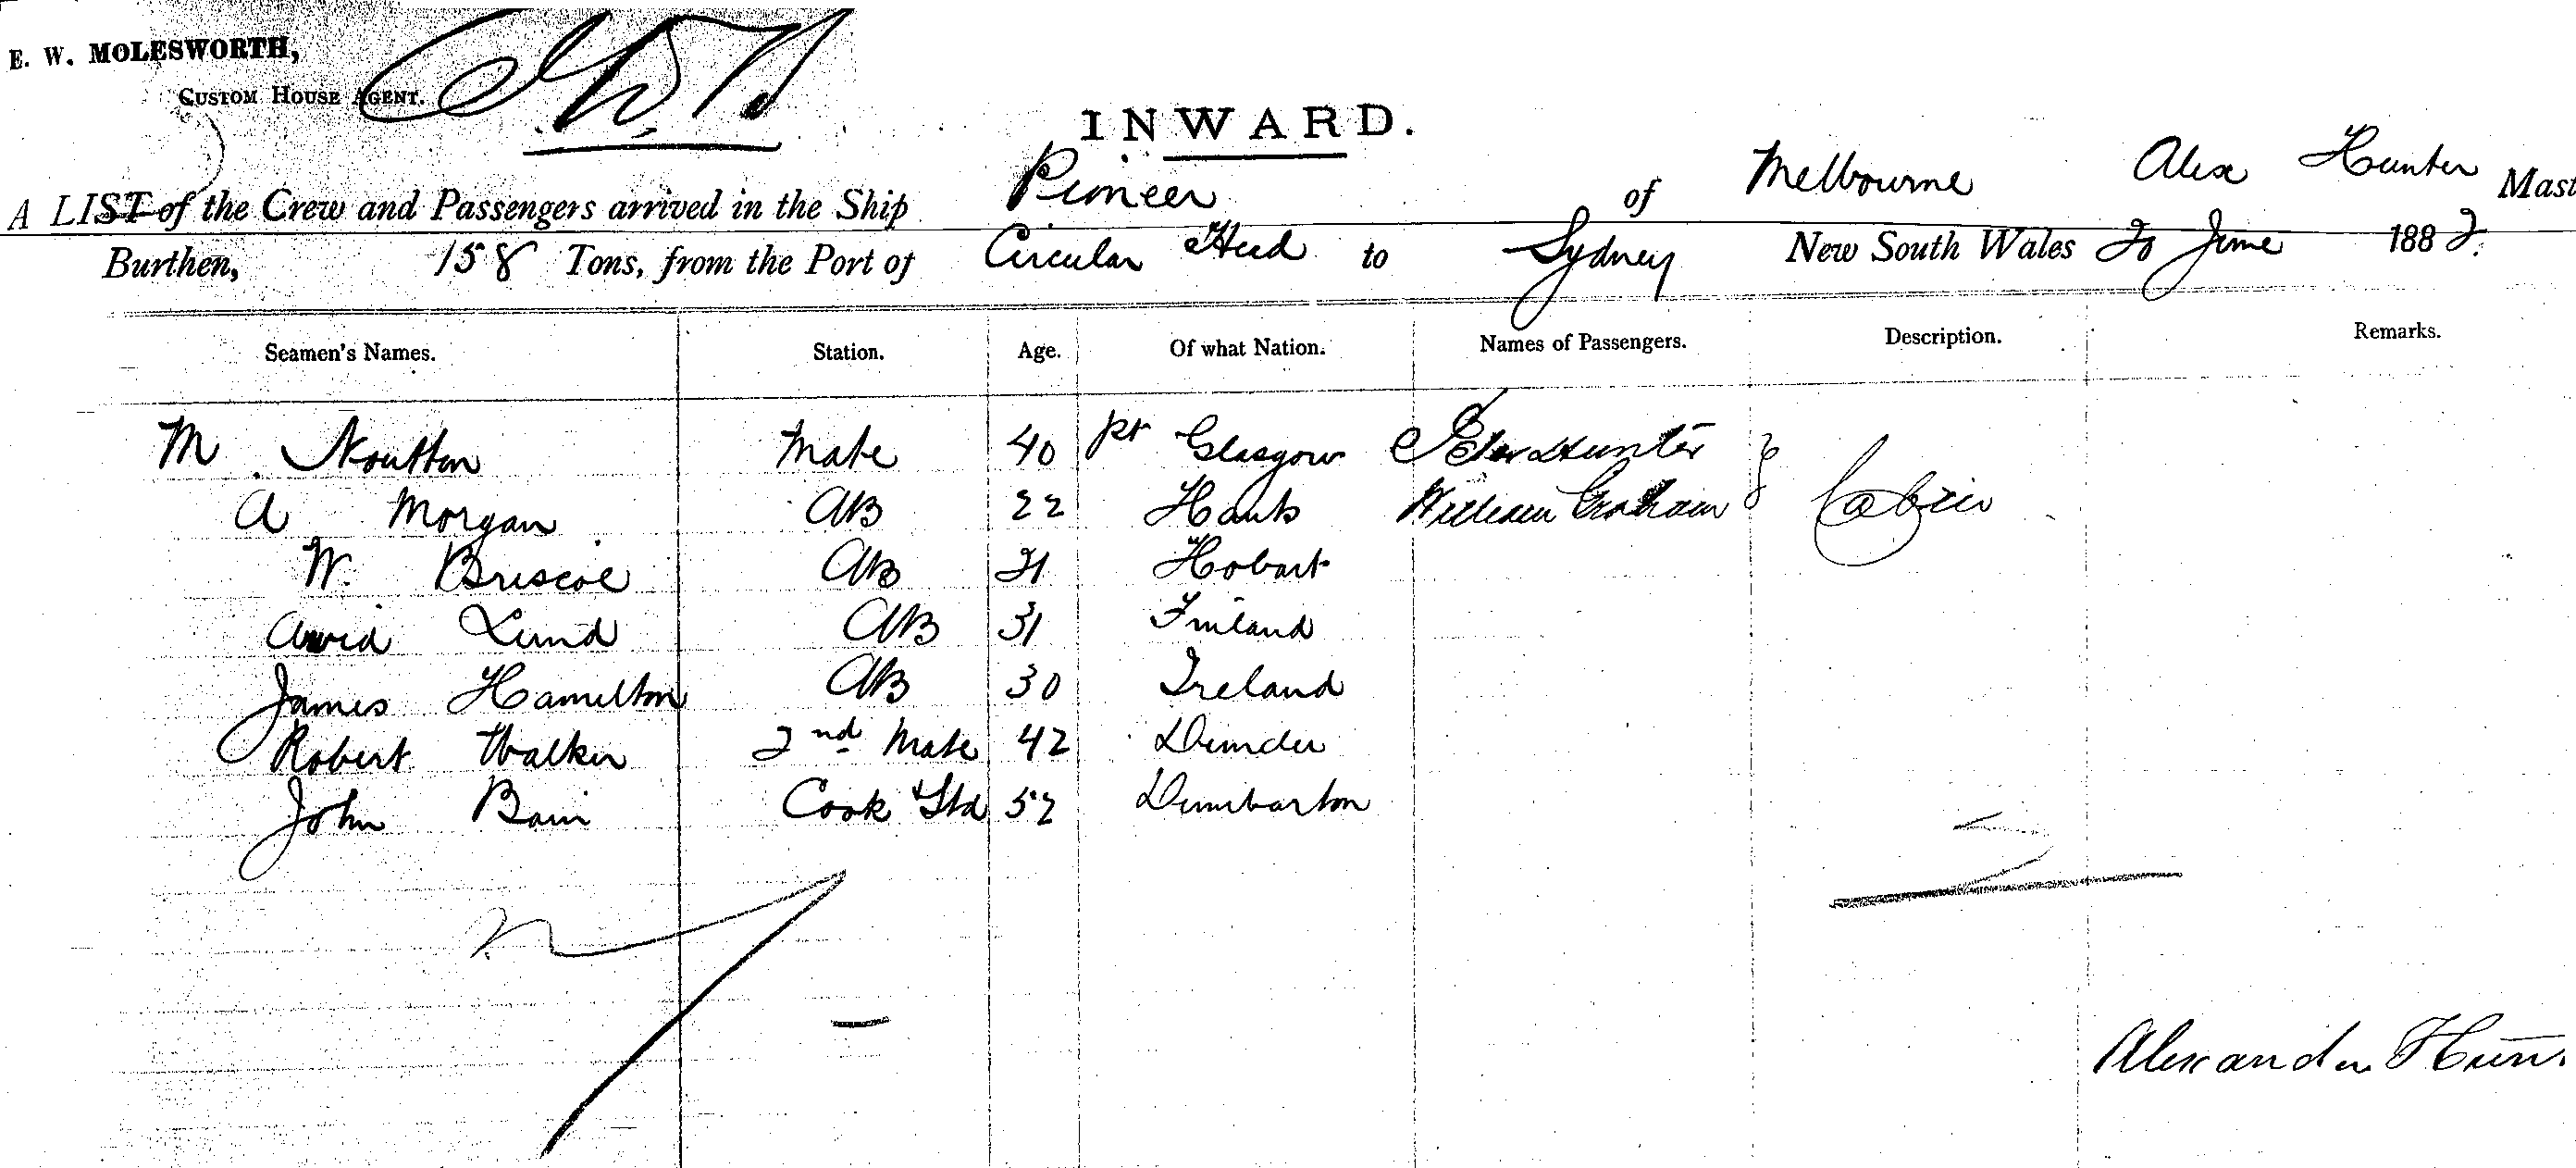 E. W. MOLESWORTH,
CUSTOM HOUSE AGENT.
INWARD.
A LIST of the Crew and Passengers arrived in the Ship Pioneer of Melbourne Alex Hunter Mast
Burthen, 158 Tons, from the Port of Circular Head to Sydney New South Wales 20 June 1882.
Seamen's Names. Station. Age. Of what Nation. Names of Passengers. Description. Remarks.
M Mate 40 pt Glasgow Hunter
A Morgan AB 22 Hants William Graham Cabin
W. Briscoe AB 21 Hobart
Arvid Lund AB 31 Finland
James Hamilton AB 30 Ireland
Robert Walker 2nd Mate 42 Dundee
John Bain Cook & Std 52 Dumbarton
Alexander Hun